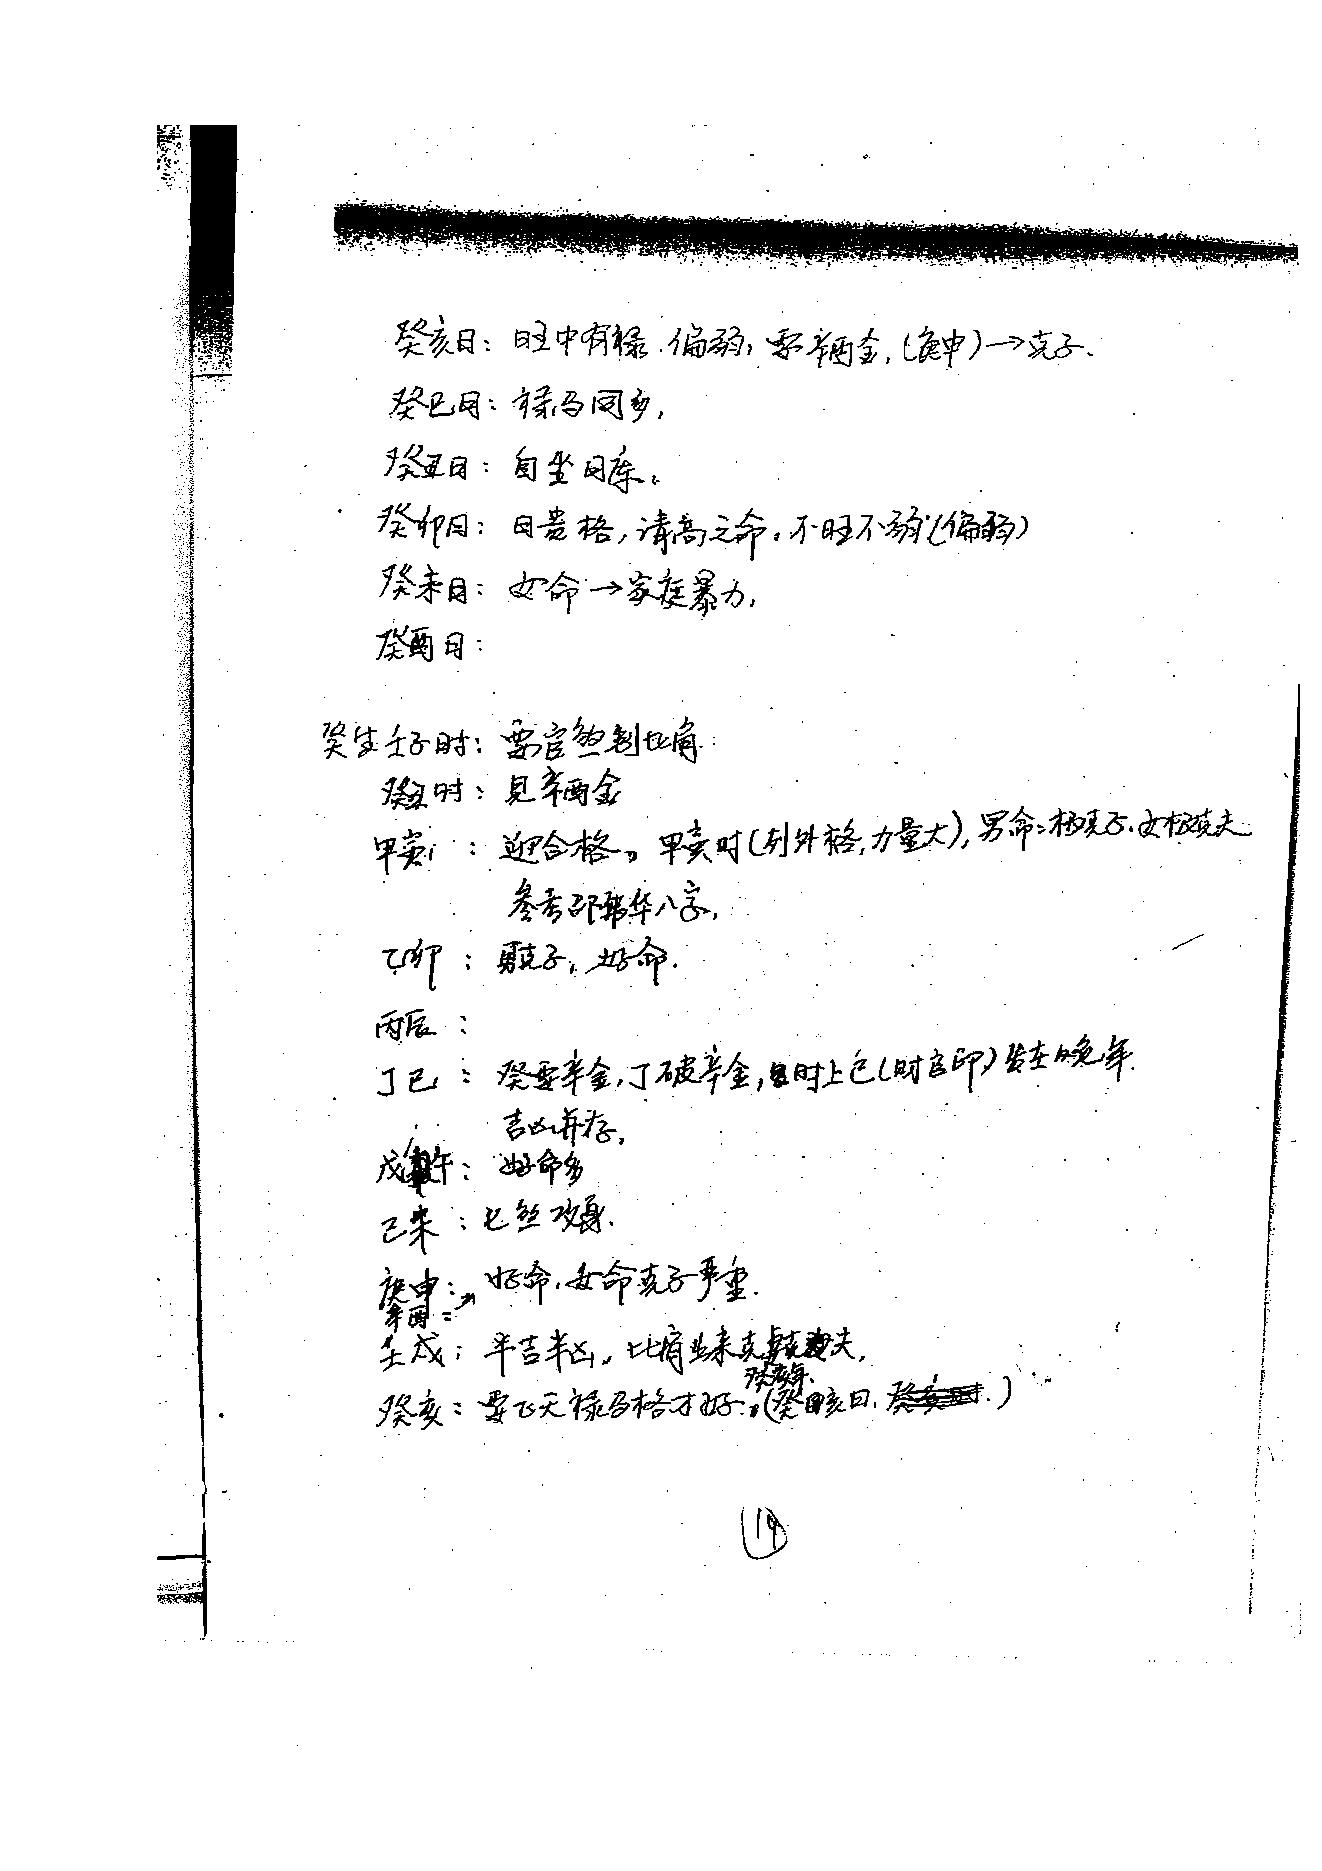 癸亥日：日旺中有禄.偏弱，要辛酉金，(庚申)→克子.
癸巳日：禄马同乡，
癸丑日：自坐日库。
癸卯日：日贵格，清高之命。不旺不弱(偏弱)
癸未日：女命→家庭暴力，
癸酉日：
癸生壬子时：要官煞制比肩
癸丑时：见辛酉金
甲寅：迎合格。甲寅时(列外格，力量大)，男命：极克子.女极克夫
参考邵伟华八字，
乙卯：男克子，好命.
丙辰：
丁巳：癸要辛金，丁破辛金，时上巳(财官印)发在晚年.
吉凶并存，
戊午：好命多
己未：七煞攻身.
庚申：好命，女命克子严重.
辛酉：
壬戌：半吉半凶，比肩来克夫，
癸亥年.
癸亥：要飞天禄马格才好。(癸亥日. )
19